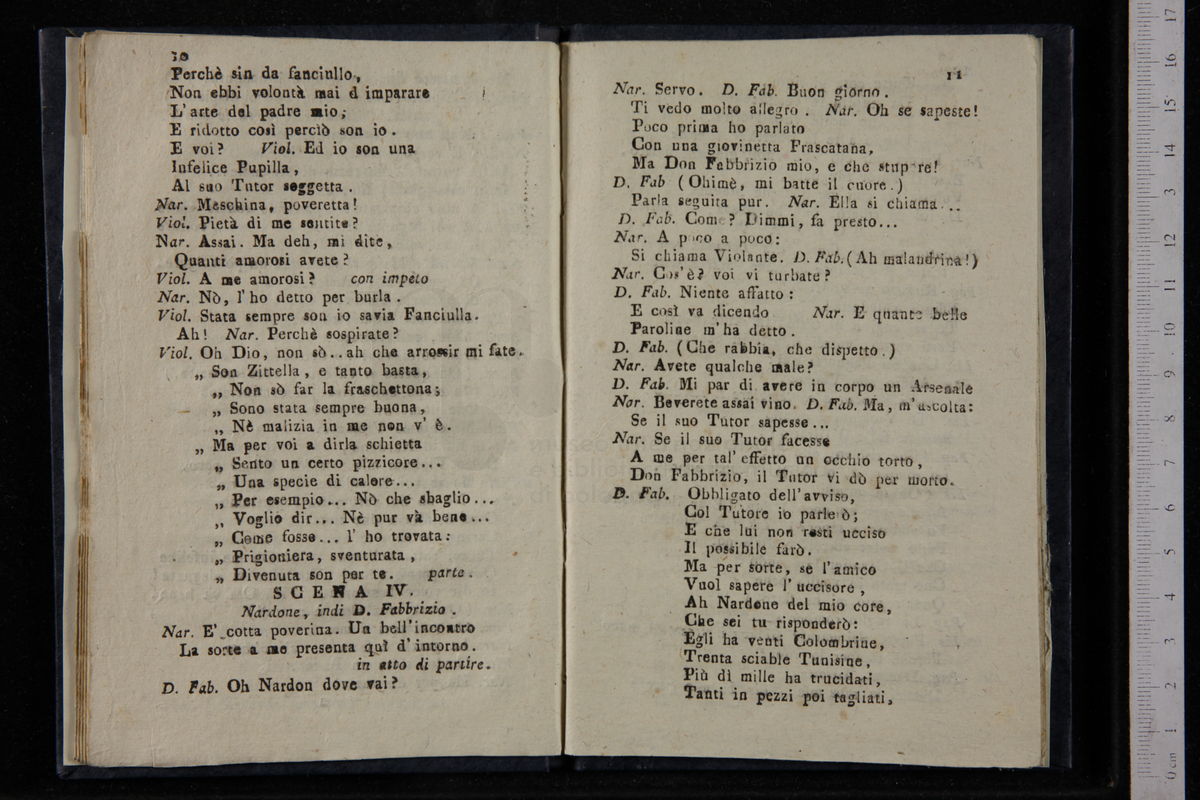 10
Perchè sin da fanciullo,
Non ebbi volontà mai d imparare
L'arte del padre mio;
E ridotto così perciò son io.
E voi? Viol. Ed io son una
Infelice Pupilla,
Al suo Tutor soggetta.
Nar. Meschina, poveretta!
Viol. Pietà di me sentite?
Nar. Assai. Ma deh, mi dite,
Quanti amorosi avete?
Viol. A me amorosi? con impeto
Nar. Nò, l'ho detto per burla.
Viol. Stata sempre son io savia Fanciulla.
Ah! Nar. Perchè sospirate?
Viol. Oh Dio, non sò..ah che arrossir mi fate.
„ Son Zittella, e tanto basta,
„ Non sò far la fraschettona;
„ Sono stata sempre buona,
„ Nè malizia in me non v' è.
„ Ma per voi a dirla schietta
„ Sento un certo pizzicore...
„ Una specie di calore...
„ Per esempio... Nò che sbaglio...
„ Voglio dir... Nè pur và bene...
„ Come fosse... l' ho trovata:
„ Prigioniera, sventurata,
„ Divenuta son per te. parte.
SCENA IV.
Nardone, indi D. Fabbrizio.
Nar. E' cotta poverina. Un bell'incontro
La sorte a me presenta quì d'intorno.
in atto di partire.
D. Fab. Oh Nardon dove vai?
11
Nar. Servo. D. Fab. Buon giorno.
Ti vedo molto allegro. Nar. Oh se sapeste!
Poco prima ho parlato
Con una giovinetta Frascatana,
Ma Don Fabbrizio mio, e che stup re!
D. Fab (Ohimè, mi batte il cuore.)
Parla seguita pur. Nar. Ella si chiama...
D. Fab. Come? Dimmi, fa presto...
Nar. A poco a poco:
Si chiama Violante. D. Fab. (Ah malandrina!)
Nar. Cos'è? voi vi turbate?
D. Fab. Niente affatto:
E così va dicendo Nar. E quante belle
Paroline m'ha detto.
D. Fab. (Che rabbia, che dispetto.)
Nar. Avete qualche male?
D. Fab. Mi par di avere in corpo un Arsenale
Nar. Beverete assai vino. D. Fab. Ma, m'ascolta:
Se il suo Tutor sapesse...
Nar. Se il suo Tutor facesse
A me per tal' effetto un occhio torto,
Don Fabbrizio, il Tutor vi dò per morto.
D. Fab. Obbligato dell'avviso,
Col Tutore io parle ò;
E che lui non resti ucciso
Il possibile farò.
Ma per sorte, se l'amico
Vuol sapere l' uccisore,
Ah Nardone del mio core,
Che sei tu risponderò:
Egli ha venti Colombrine,
Trenta sciable Tunisine,
Più di mille ha trucidati,
Tanti in pezzi poi tagliati,